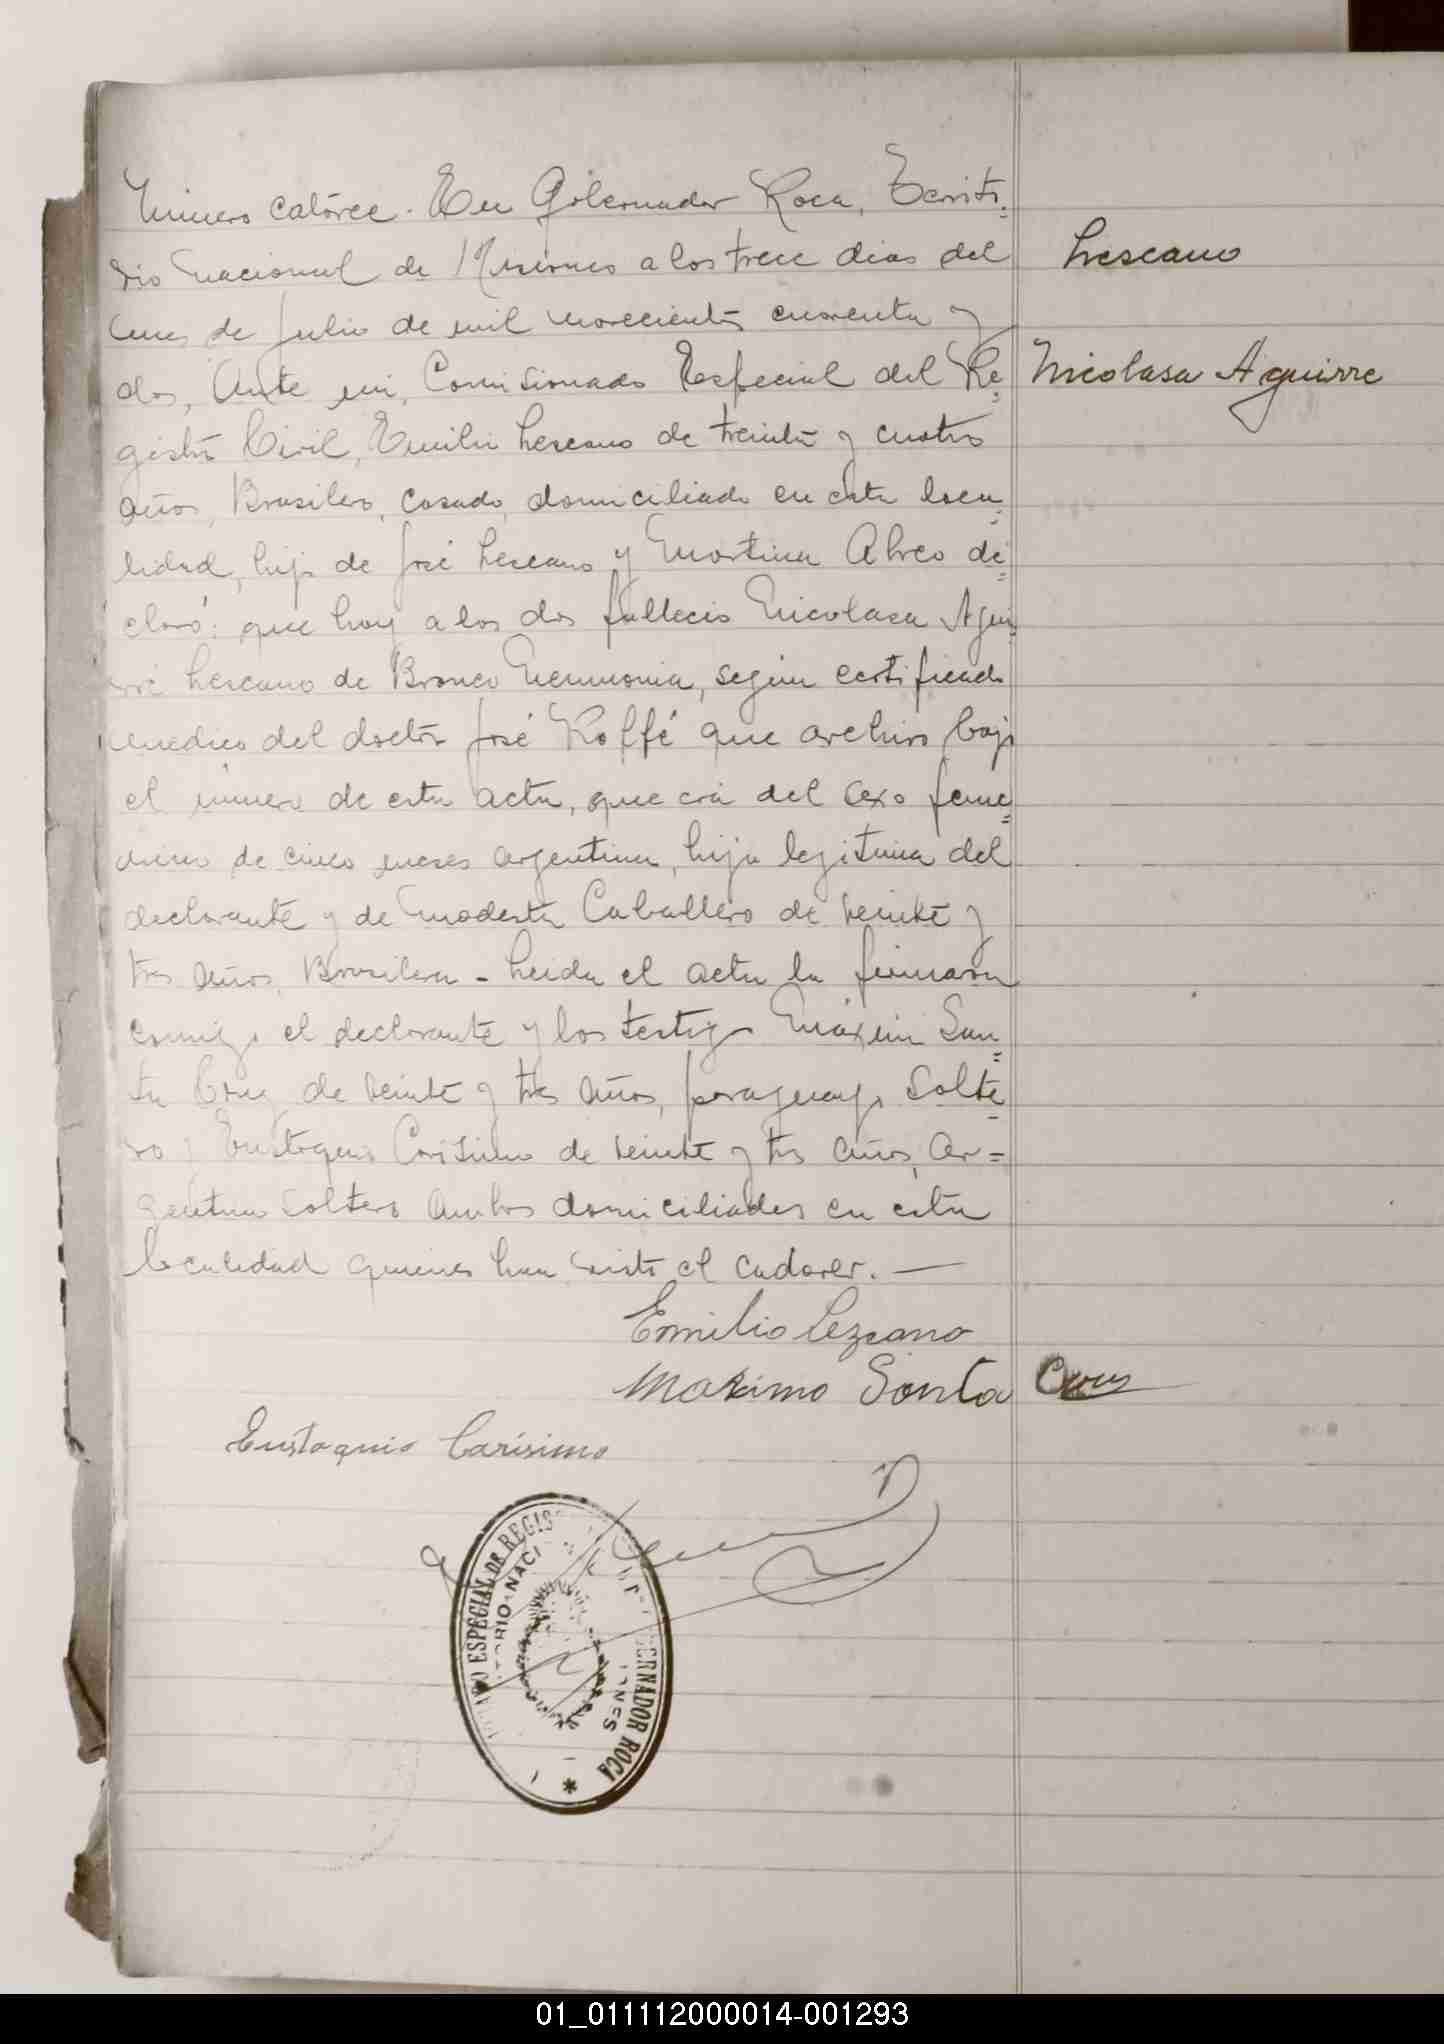 Número catórce. En Gobernador Roca, Territo=
rio Nacional de Misiones a los trece dias del
mes de Julio de mil novecientos cuarenta y
dos, Ante mi, Comisionado Especial del Re=
gistro Civil, Emilio Lescano de treinta y cuatro
años, Brasilero, casado, domiciliado en esta loca=
lidad, hijo de José Lescano y Martina Abreo de=
claró: que hoy a las dos fallecio Nicolasa Agui=
rre Lescano de Bronco Neumonia, según certificado
medico del doctor José Roffé que archivo bajo
el número de esta acta, que era del sexo feme=
nino de cinco meses argentina, hija legitima del
declarante y de Modesta Caballero de veinte y
tres años, Brasilera - Leida el acta la firmaron
conmigo el declarante y los testigos Máximo San=
ta Cruz de veinte y tres años, paraguayo solte=
ro y Eustaquio Carísimo de veinte y tres años, ar=
gentino soltero ambos domiciliados en esta
localidad quienes han visto el cadaver. —
Lescano
Nicolasa Aguirre
Emilio Lezcano
Maximo Santa Cruz
Eustaquio Carísimo
ESPECIAL DE REGIS
GOBERNADOR ROCA
TORIO NACI
01_011112000014-001293